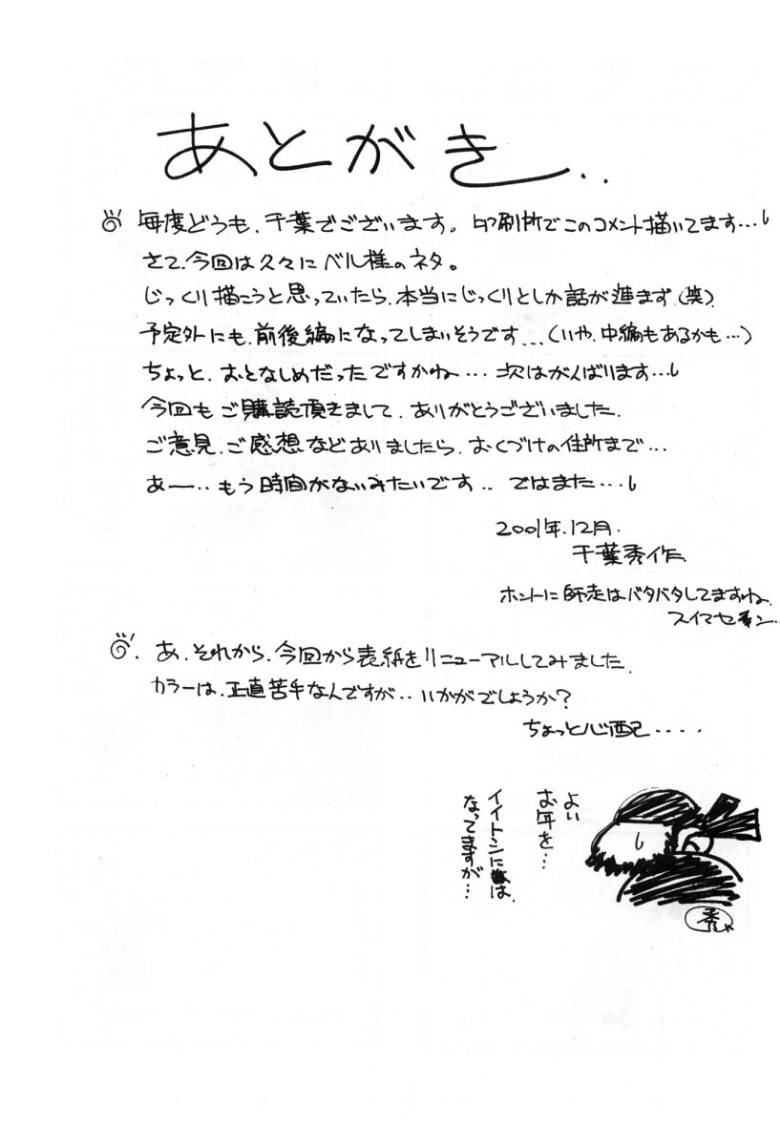 あとがき..
毎度どうも、千葉でございます。印刷所でこのコメント描いてます…
さて、今回は久々にベル様のネタ。
じっくり描こうと思っていたら、本当にじっくりとしか話が進まず、(笑)
予定外にも、前後編になってしまいそうです...(いや、中編もあるかも…)
ちょっと、おとなしめだったですかね…次はがんばります…
今回もご購読頂きまして、ありがとうございました、
ご意見、ご感想などありましたら、おくづけの住所まで…
あー‥もう時間がないみたいです‥ ではまた…
2001年、12月、
千葉秀作
ホントに師走はバタバタしてますね、
スイマセン‥
あ、それから、今回から表紙をリニューアルしてみました、
カラーは、正直苦手なんですが‥いかがでしょうか?
ちょっと心配・・・・
よい
お年を…
イイトシには、
なってますが…
秀